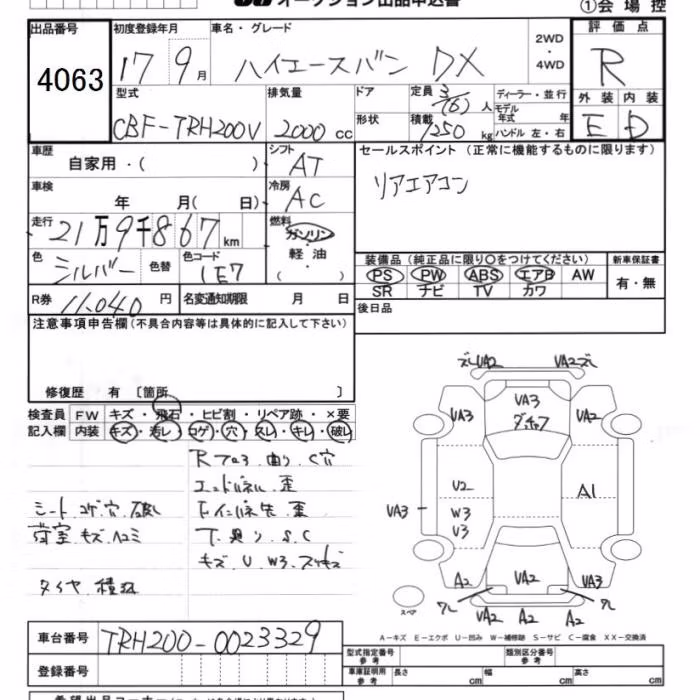 オークション出品申込書
①会場控
出品番号
4063
初度登録年月
17 9月
車名・グレード
ハイエースバン DX
2WD
・
4WD
評価点
R
型式
CBF-TRH200V
排気量
2000 cc
ドア
形状
定員 3/(6) 人
積載 1250 kg
ディーラー・並行
モデル年式 年
ハンドル 左・右
外装 内装
E D
車歴
自家用・( )
シフト
AT
セールスポイント（正常に機能するものに限ります）
リアエアコン
車検
年 月( 日)
冷房
AC
走行
21万9千867km
燃料
ガソリン
軽油
・
( )
色
シルバー
色替
色コード
1E7
装備品（純正品に限り○をつけてください）
PS PW ABS エアB AW
SR ナビ TV カワ
新車保証書
有・無
R券 11,040 円
名変通知期限 月 日
後日品
注意事項申告欄（不具合内容等は具体的に記入して下さい）
修復歴 有 〔箇所 〕
検査員
記入欄
FW キズ・飛石・ヒビ割・リペア跡・×要
内装 キズ・汚レ・コゲ・穴・スレ・キレ・破レ
Rフロア 曲り C穴
エンドパネル 歪
シート コゲ 穴 破レ
荷室 キズ ヘコミ
下廻り S.C
キズ U W3
UA2
UA2
UA3
UA3
UA2
U2
W3
V3
UA3
A1
A2
UA2
UA3
UA2
A2
A2
スペア
A－キズ E－エクボ U－凹み W－補修跡 S－サビ C－腐食 XX－交換済
車台番号
TRH200-0023329
登録番号
型式指定番号
参考
類別区分番号
参考
車庫証明用
参考
長さ cm
幅 cm
高さ cm